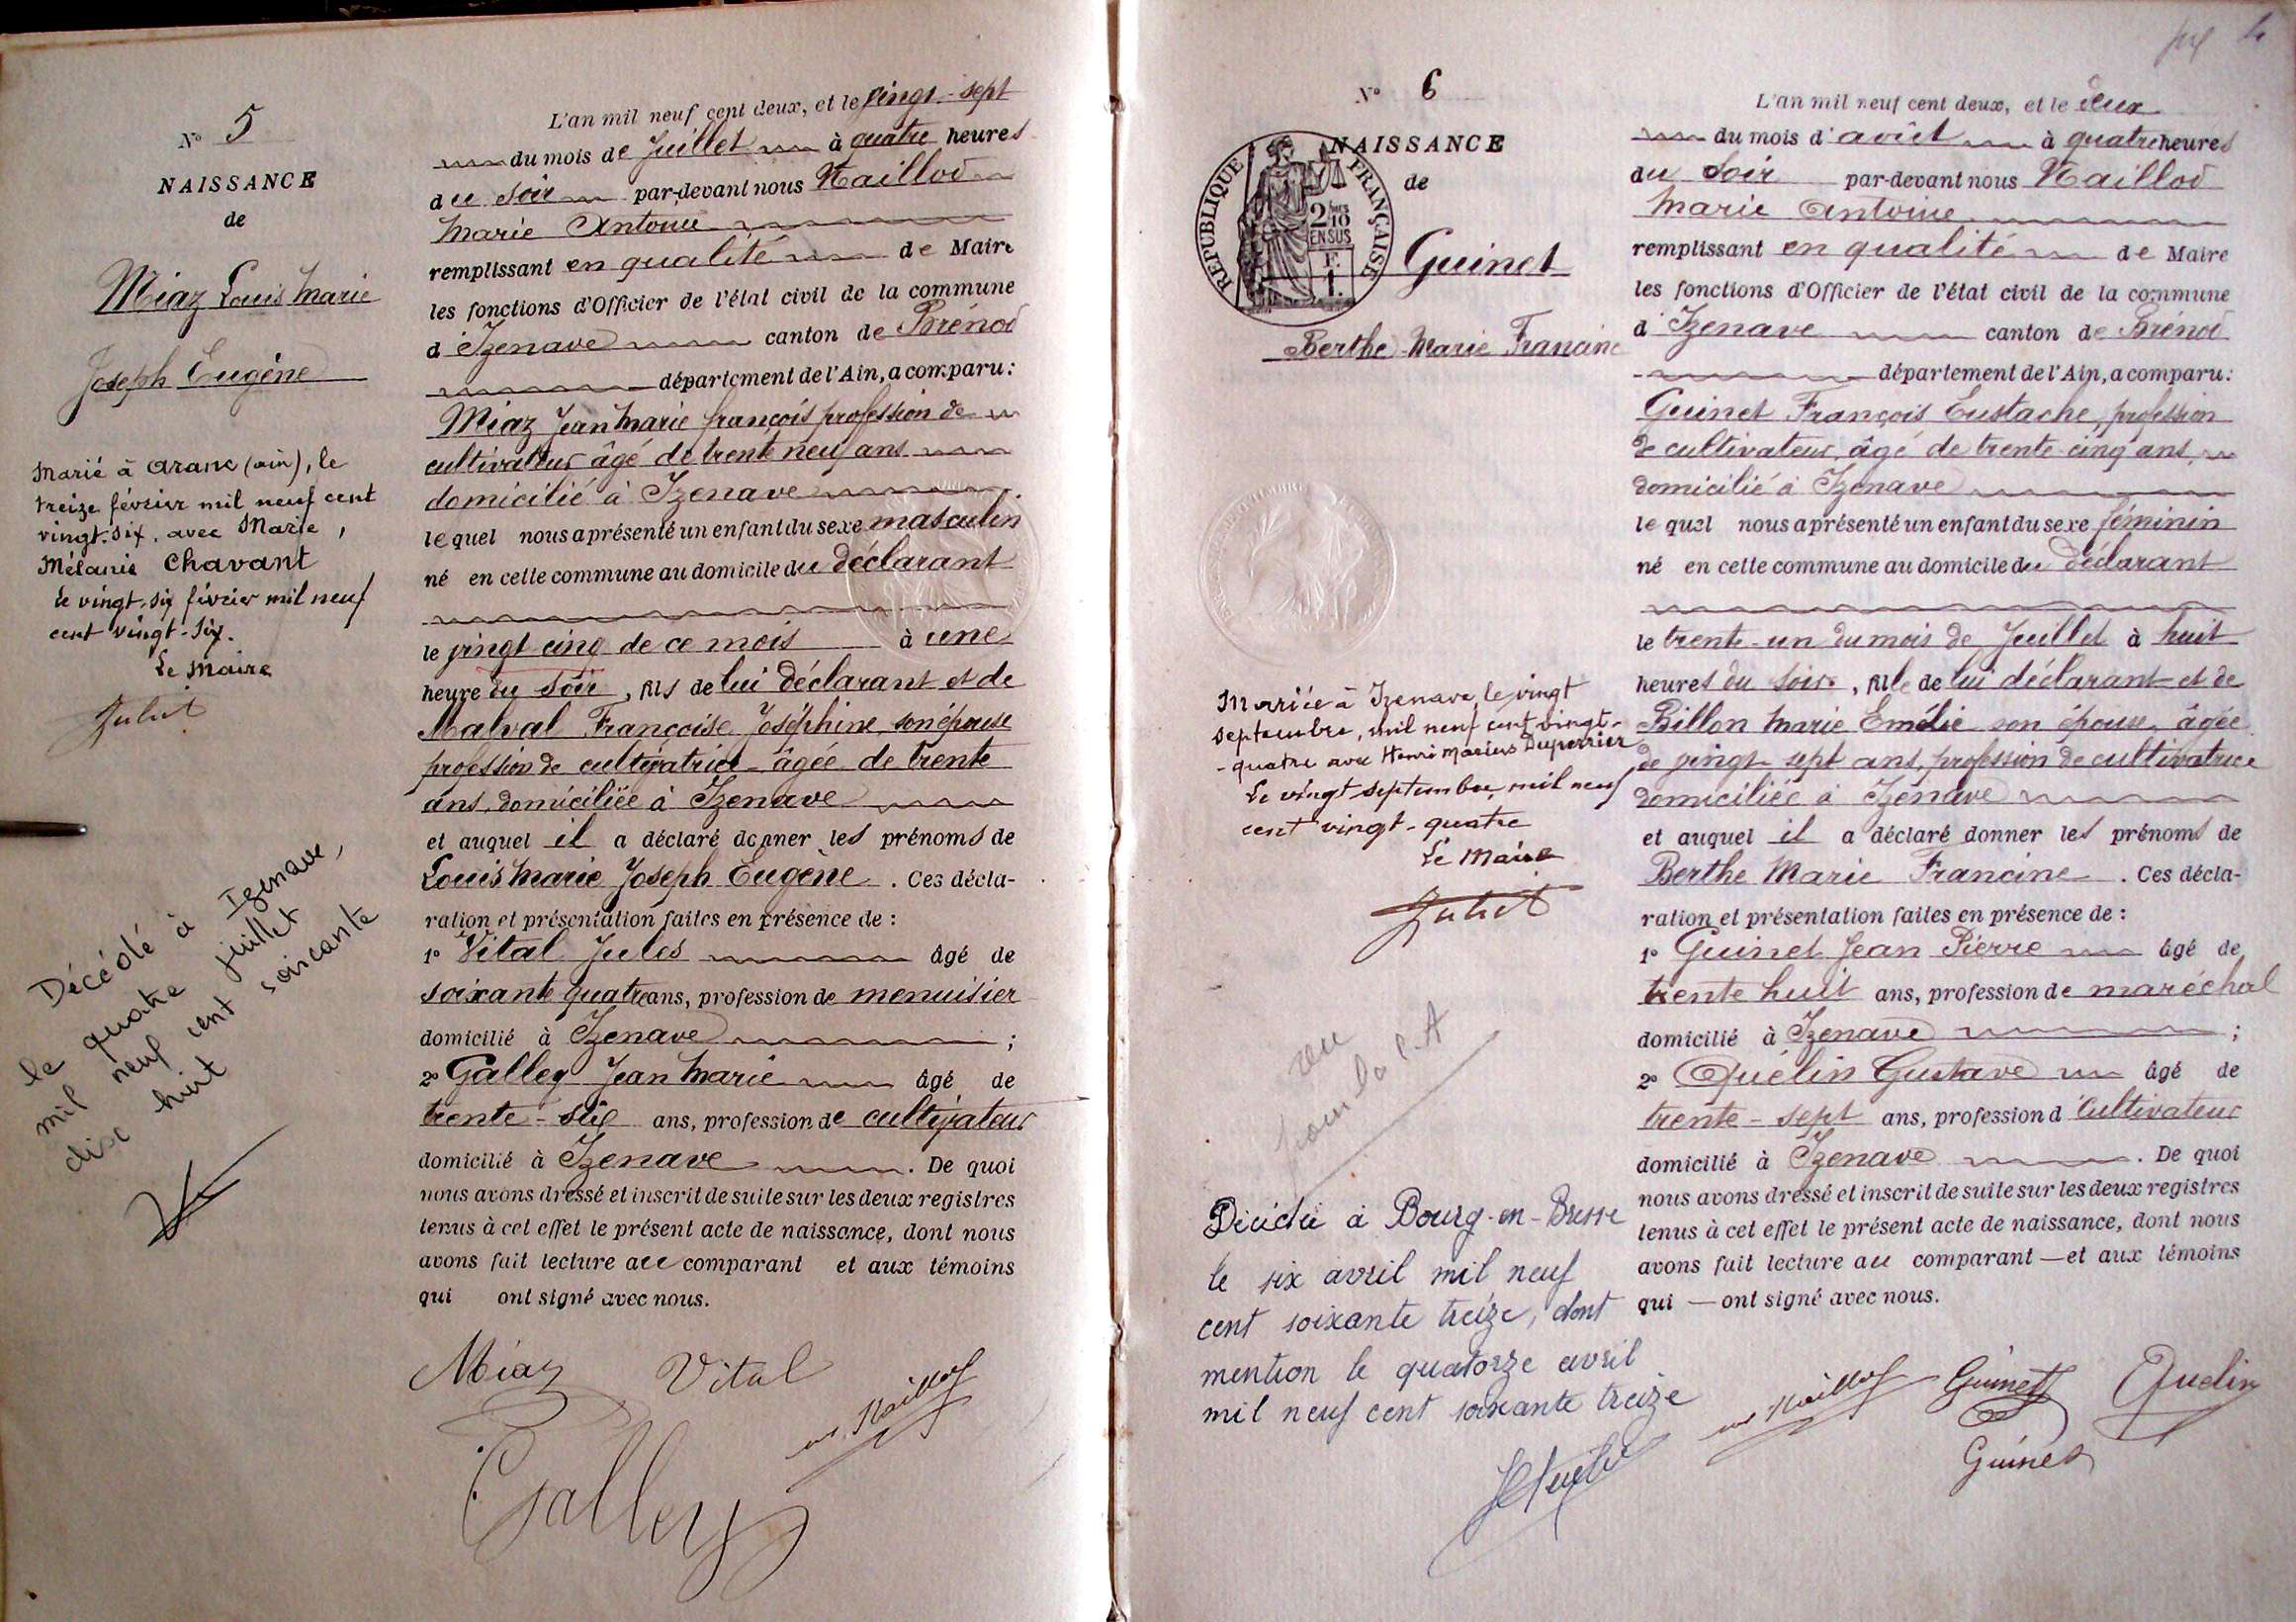 N° 5
NAISSANCE
de
Miaz Louis Marie
Joseph Eugène
Marié à Aranc (ain), le
treize février mil neuf cent
vingt-six, avec Marie,
Mélanie Chavant
Le vingt-six février mil neuf
cent vingt-six.
Le Maire
Juliet
Décédé à Izenave,
le quatre juillet
mil neuf cent soixante
dix huit
L'an mil neuf cent deux, et le vingt-sept
du mois de Juillet à quatre heures
du soir par-devant nous Maillod
Marie Antoine
remplissant en qualité de Maire
les fonctions d'Officier de l'état civil de la commune
d'Izenave canton de Brénod
département de l'Ain, a comparu:
Miaz Jean Marie françois profession de
cultivateur âgé de trente neuf ans
domicilié à Izenave
lequel nous a présenté un enfant du sexe masculin
né en cette commune au domicile du déclarant
le vingt cinq de ce mois à une
heure du soir, fils de lui déclarant et de
Malval Françoise Joséphine son épouse
profession de cultivatrice âgée de trente
ans, domiciliée à Izenave
et auquel il a déclaré donner les prénoms de
Louis Marie Joseph Eugène. Ces décla-
ration et présentation faites en présence de :
1° Vital Jules âgé de
soixante quatre ans, profession de menuisier
domicilié à Izenave ;
2° Galley Jean Marie âgé de
trente-six ans, profession de cultivateur
domicilié à Izenave. De quoi
nous avons dressé et inscrit de suite sur les deux registres
tenus à cet effet le présent acte de naissance, dont nous
avons fait lecture au comparant et aux témoins
qui ont signé avec nous.
Miaz Vital
Maillod
Galley
N° 6
NAISSANCE
de
REPUBLIQUE FRANÇAISE
2/10
EN SUS
F.
1.
Guinet
Berthe Marie Francine
Mariée à Izenave, le vingt
septembre, mil neuf cent vingt-
-quatre avec Henri Marius Duperrier
Le vingt septembre, mil neuf
cent vingt-quatre
Le Maire
Juliet
vu
pour la C.A
Décédée à Bourg-en-Bresse
le six avril mil neuf
cent soixante treize, dont
mention le quatorze avril
mil neuf cent soixante treize
L'an mil neuf cent deux, et le deux
du mois d'août à quatre heures
du soir par-devant nous Maillod
Marie Antoine
remplissant en qualité de Maire
les fonctions d'Officier de l'état civil de la commune
d'Izenave canton de Brénod
département de l'Ain, a comparu:
Guinet François Eustache, profession
de cultivateur, âgé de trente-cinq ans,
domicilié à Izenave
lequel nous a présenté un enfant du sexe féminin
né en cette commune au domicile du déclarant
le trente-un du mois de Juillet à huit
heures du soir, fille de lui déclarant et de
Billon Marie Emélie son épouse, âgée
de vingt-sept ans, profession de cultivatrice
domiciliée à Izenave
et auquel il a déclaré donner les prénoms de
Berthe Marie Francine. Ces décla-
ration et présentation faites en présence de :
1° Guinet Jean Pierre âgé de
trente huit ans, profession de maréchal
domicilié à Izenave ;
2° Quélin Gustave âgé de
trente-sept ans, profession d cultivateur
domicilié à Izenave. De quoi
nous avons dressé et inscrit de suite sur les deux registres
tenus à cet effet le présent acte de naissance, dont nous
avons fait lecture au comparant — et aux témoins
qui — ont signé avec nous.
Maillod Guinet Quelin
Guinet